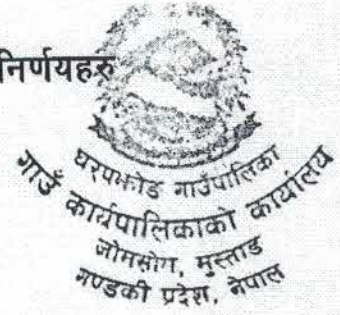 निर्णयहरु
घरपझोङ गाउँपालिका
गाउँ कार्यपालिकाको कार्यालय
जोमसोम, मुस्ताङ
गण्डकी प्रदेश, नेपाल